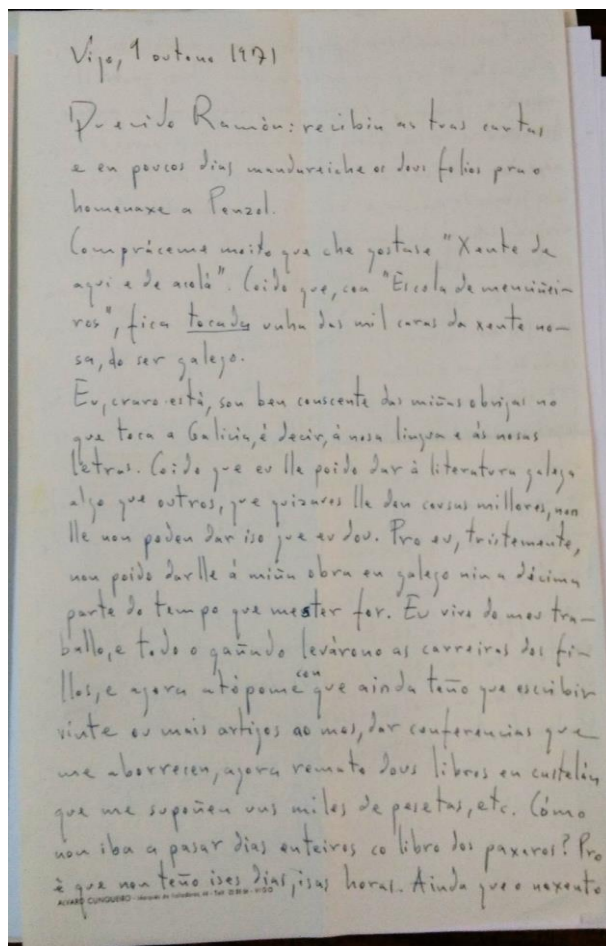 Vigo, 1 outono 1971
Querido Ramón: recibin as tuas cartas
e en poucos dias mandareiche os dous folios pra o
homenaxe a Penzol.
Compráceme moito que che gostase "Xente de
aqui e de acolá". Coido que, con "Escola de menciñei-
ros", fica tocada unha das mil caras da xente no-
sa, do ser galego.
Eu, craro está, son ben consciente das miñas obrigas no
que toca a Galicia, é decir, á nosa lingua e ás nosas
letras. Coido que eu lle poido dar á literatura galega
algo que outros, que quizaves lle den cousas millores, non
lle non poden dar iso que eu dou. Pro eu, tristemente,
non poido darlle á miña obra en galego nin a décima
parte do tempo que mester for. Eu vivo do meu tra-
ballo, e todo o gañado levárono as carreiras dos fi-
llos, e agora atópome con que ainda teño que escribir
vinte ou mais artigos ao mes, dar conferencias que
me aborrecen, agora remato dous libros en castelán
que me supoñen uns miles de pesetas, etc. Cómo
non iba a pasar dias enteiros co libro dos paxaros? Pro
é que non teño ises dias, isas horas. Ainda que o naxento
ALVARO CUNQUEIRO - VIGO